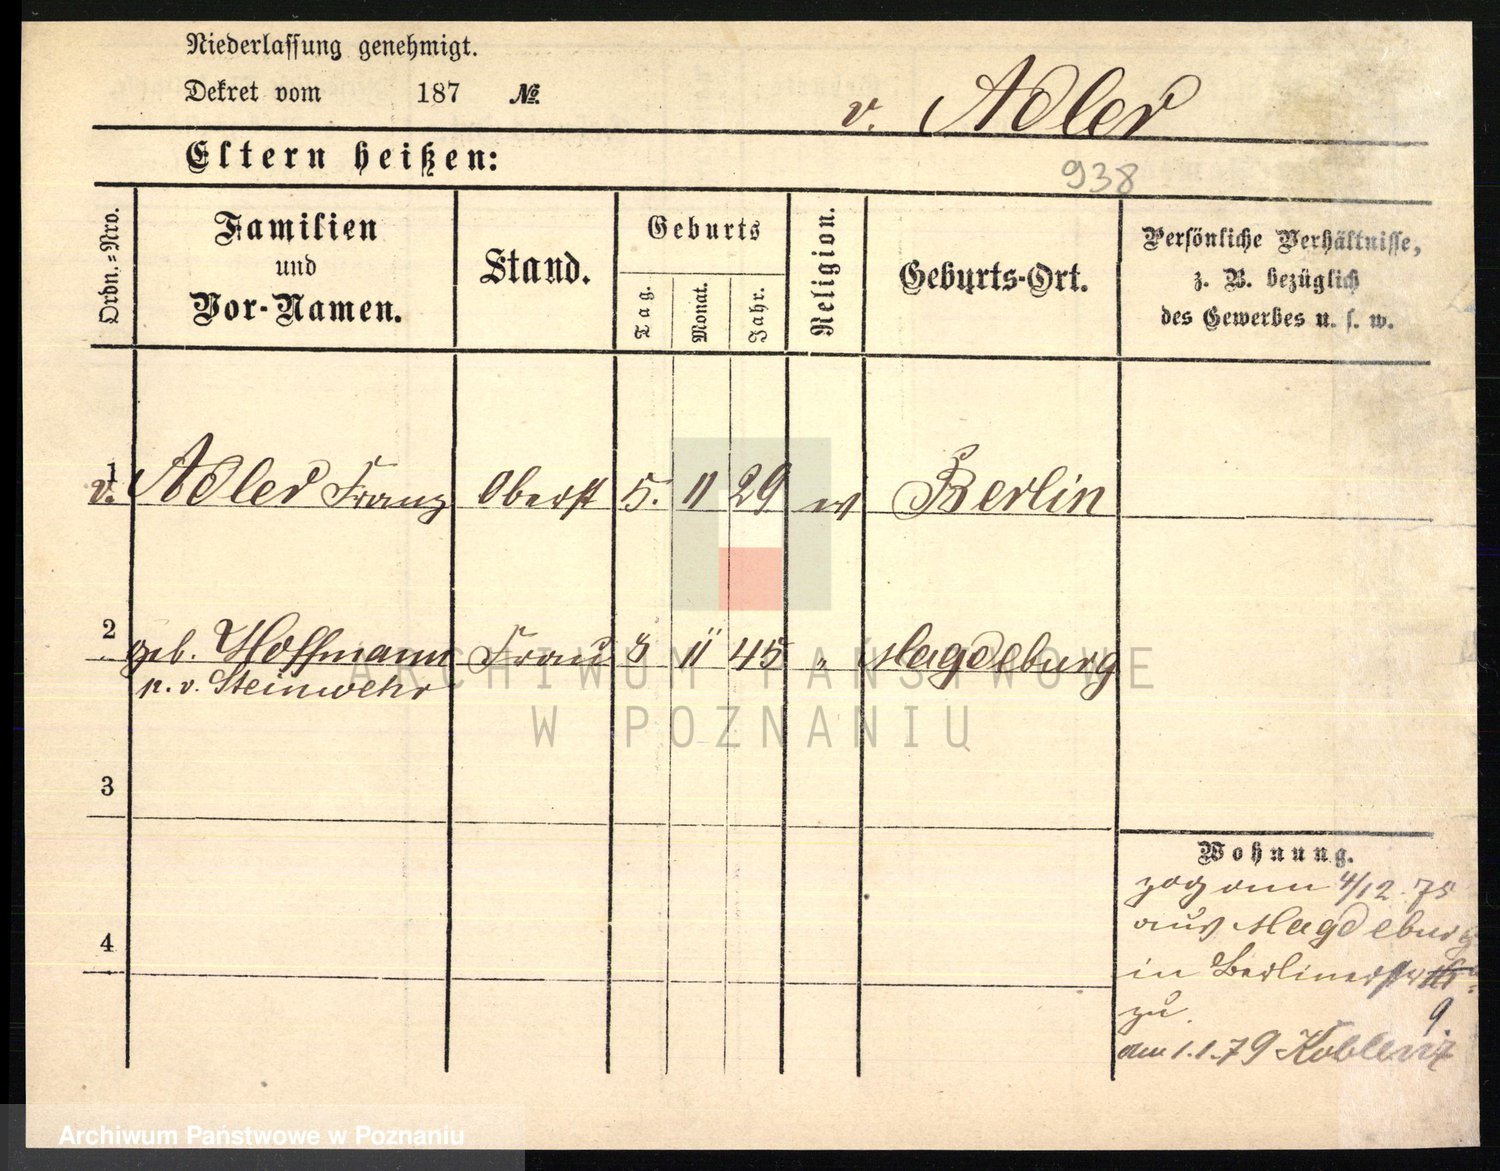 Niederlassung genehmigt.
Dekret vom 187 №.
v. Adler
Eltern heißen:
938
Ordn.=Nro.
Familien
und
Vor-Namen.
Stand.
Geburts
Tag.
Monat.
Jahr.
Religion.
Geburts-Ort.
Persönliche Verhältnisse,
z. B. bezüglich
des Gewerbes u. s. w.
1
v. Adler Franz Oberst 5. 11 29 ev Berlin
2
geb. Hoffmann Frau 8 11 45 " Magdeburg
v. Steinwehr
ARCHIWUM PAŃSTWOWE
W POZNANIU
3
4
Wohnung.
zog am 4/12 75
aus Magdeburg
in Berlinerstr
9
zu.
am 1.1.79 Koblenz
Archiwum Państwowe w Poznaniu